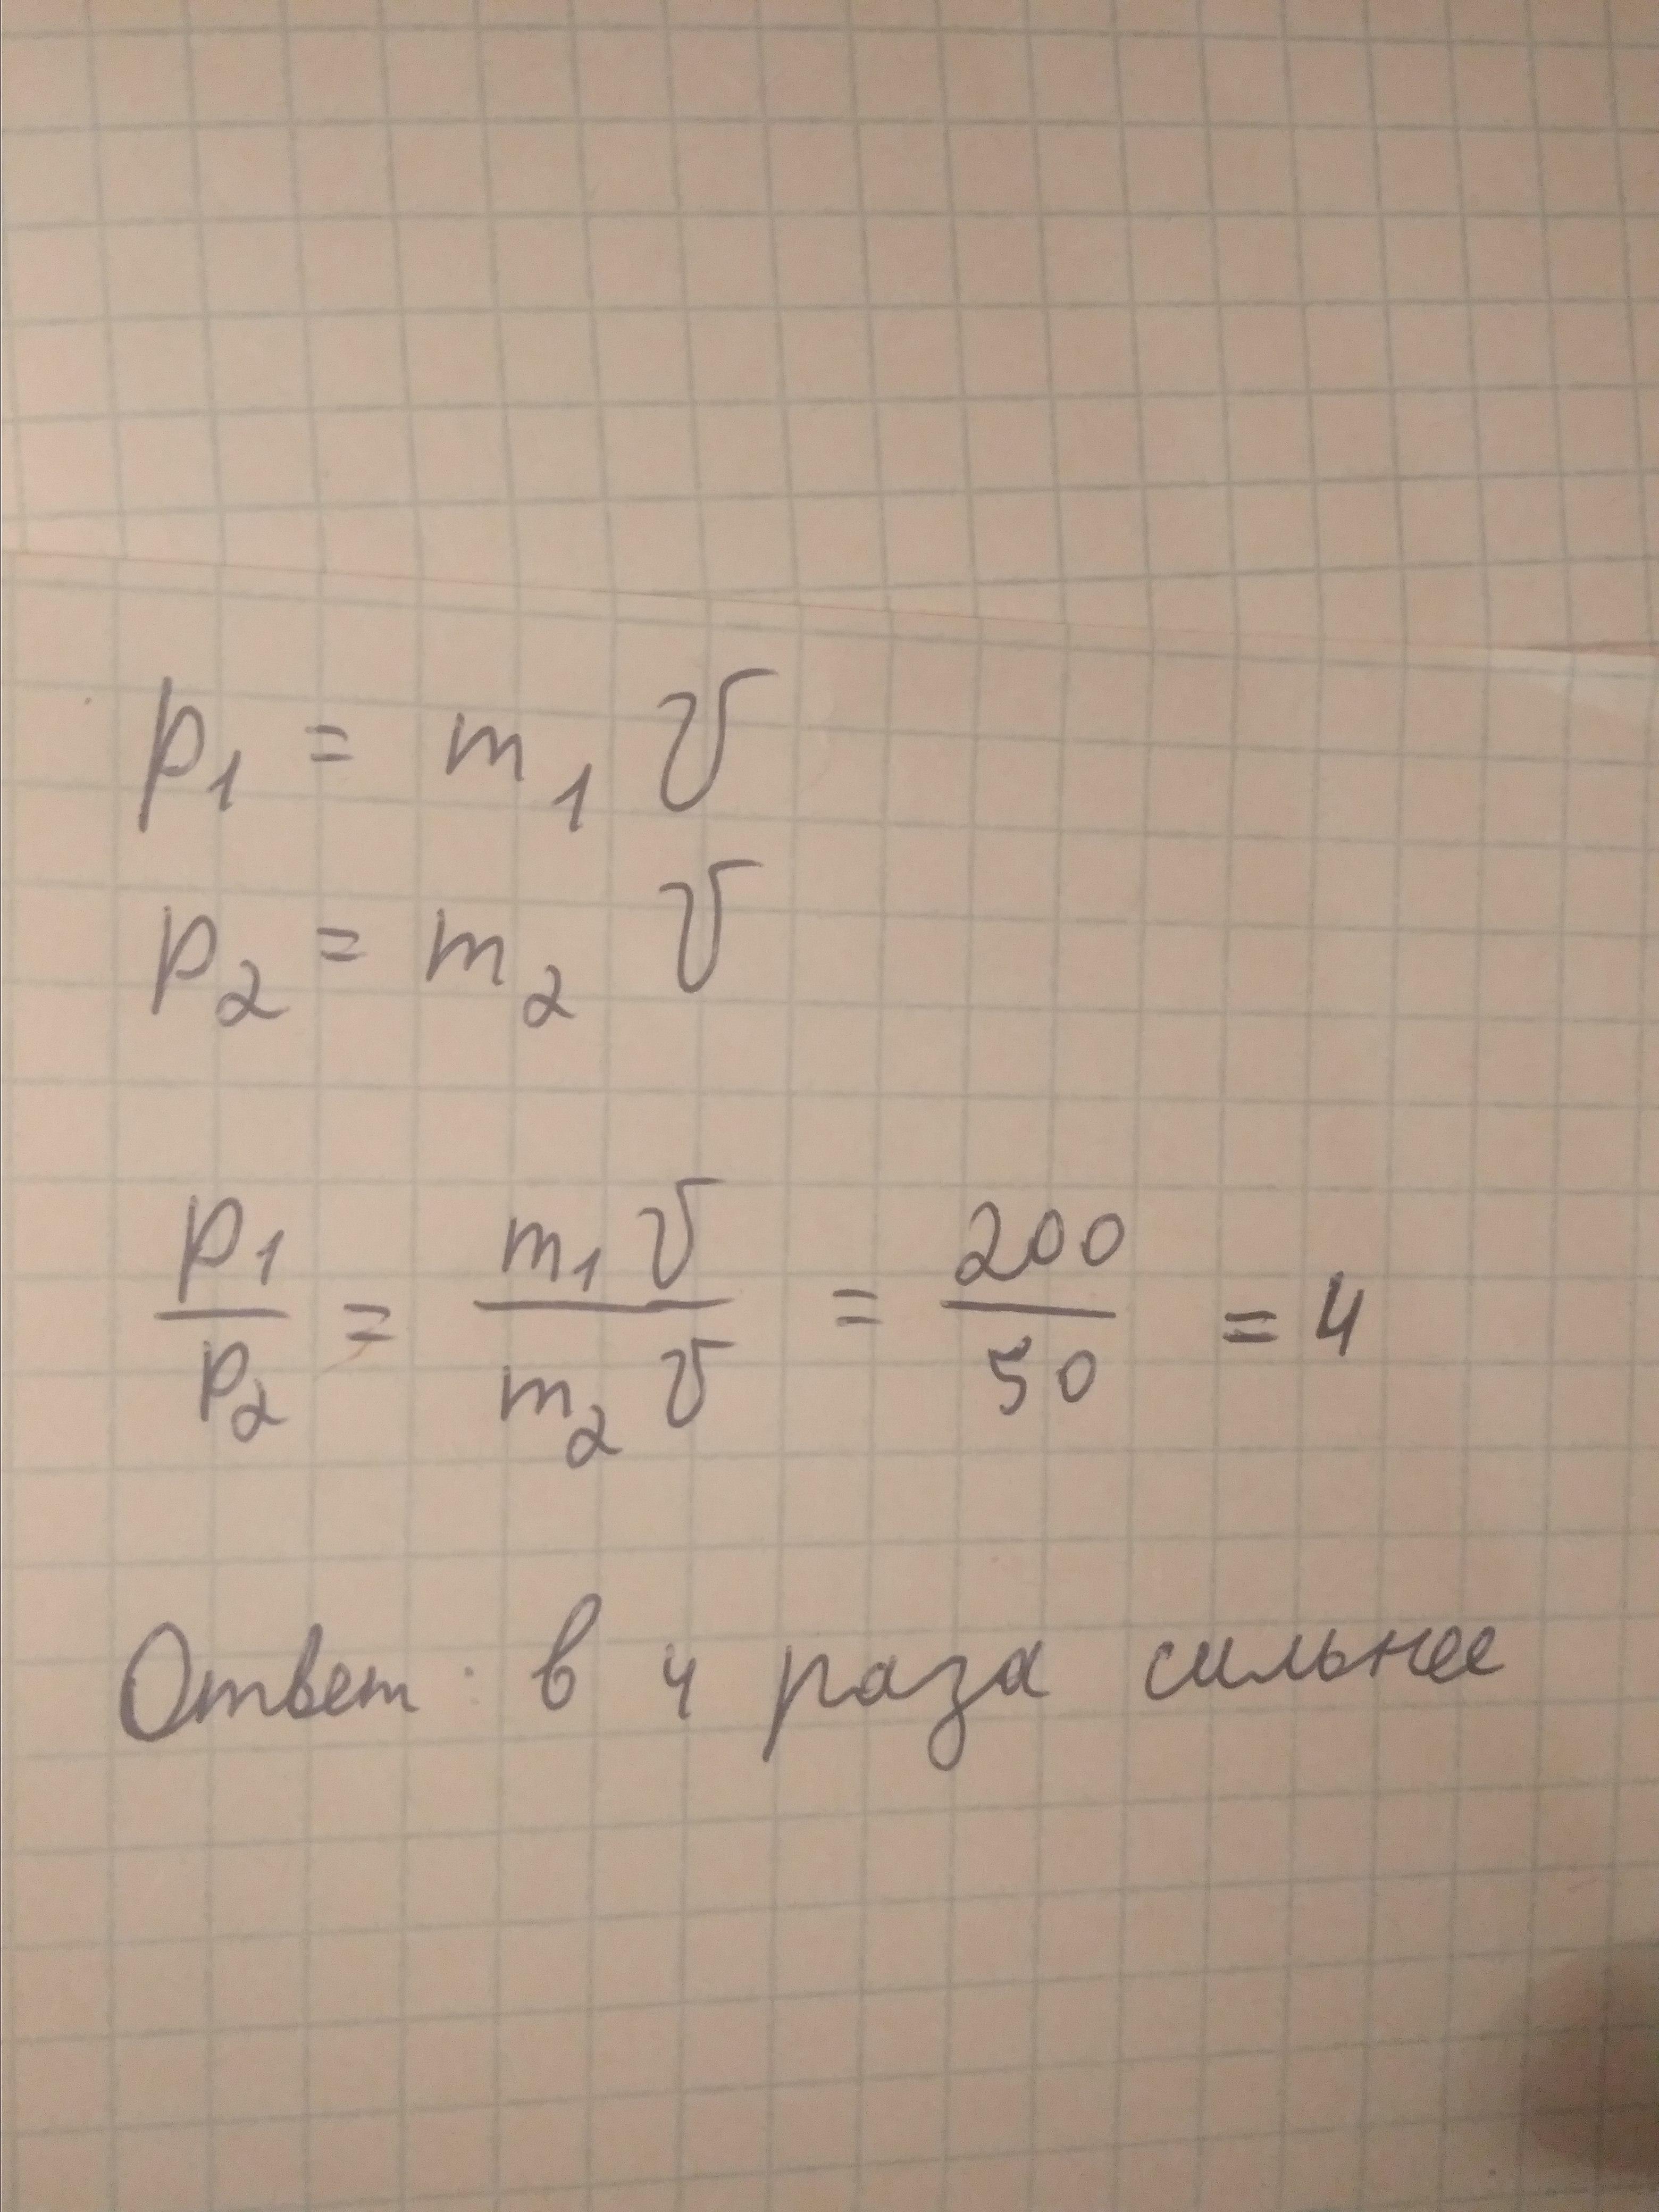 p₁ = m₁ υ
p₂ = m₂ υ
p₁/p₂ = m₁ υ/m₂ υ = 200/50 = 4
Ответ: в 4 раза сильнее